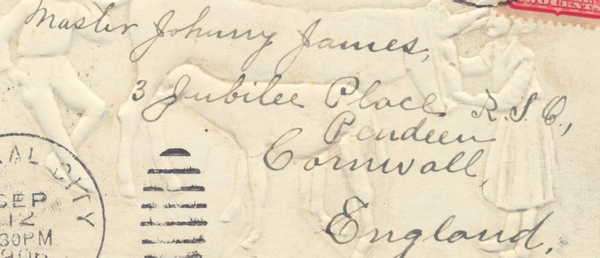 Master Johnny James,
3 Jubilee Place R.S.O.,
Pendeen
Cornwall,
England.
RAL CITY
SEP
12
30PM